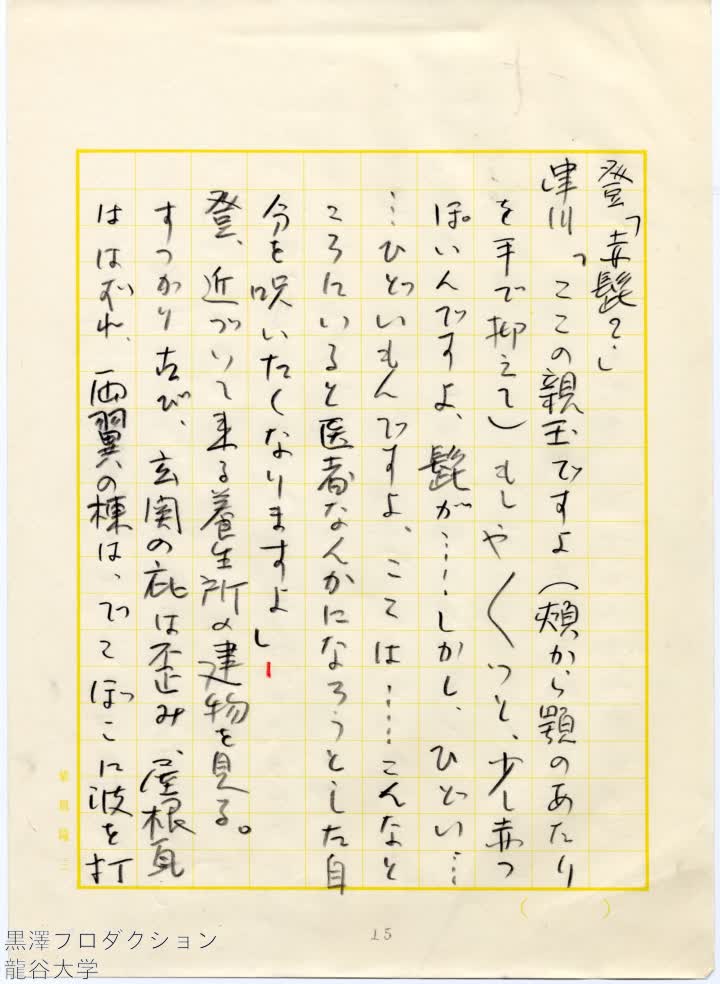 登「赤髭？」
津川「ここの親玉ですよ（頬から顎のあたり
を手で抑えて）もしや〱っと、少し赤っ
ぽいんですよ、髭が……しかし、ひどい…
…ひどいもんですよ、こゝは……こんなと
ころにいると医者なんかになろうとした自
分を呪いたくなりますよ」
登、近づいて来る養生所の建物を見る。
すっかり古び、玄関の庇は歪み、屋根瓦
ははずれ、両翼の棟は、でこぼこに波を打
15
黒澤プロダクション
龍谷大学